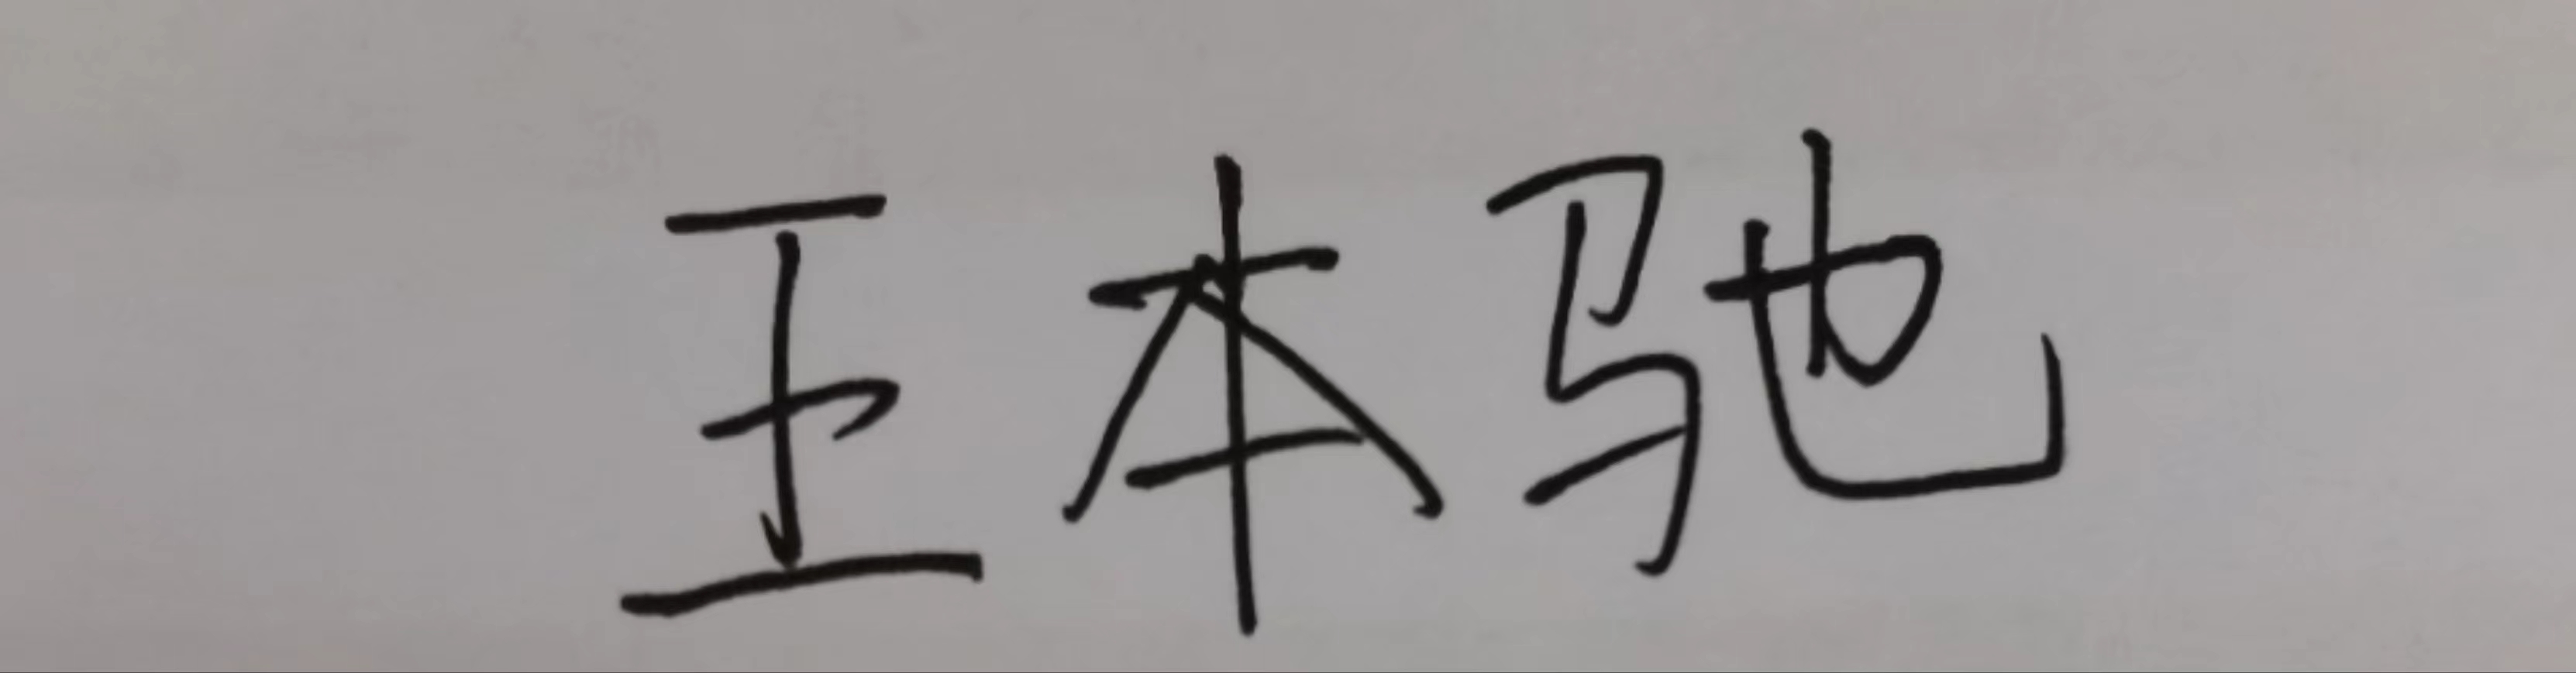 王本驰